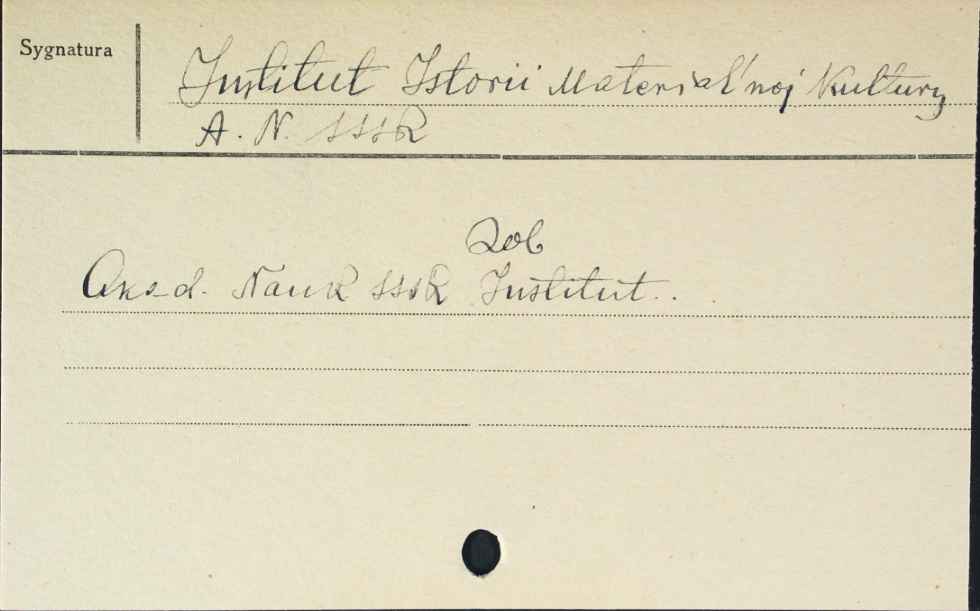 Sygnatura
Institut Istorii Material'noj Kultury
A. N. SSSR
Zob
Akad. Nauk SSSR Institut..